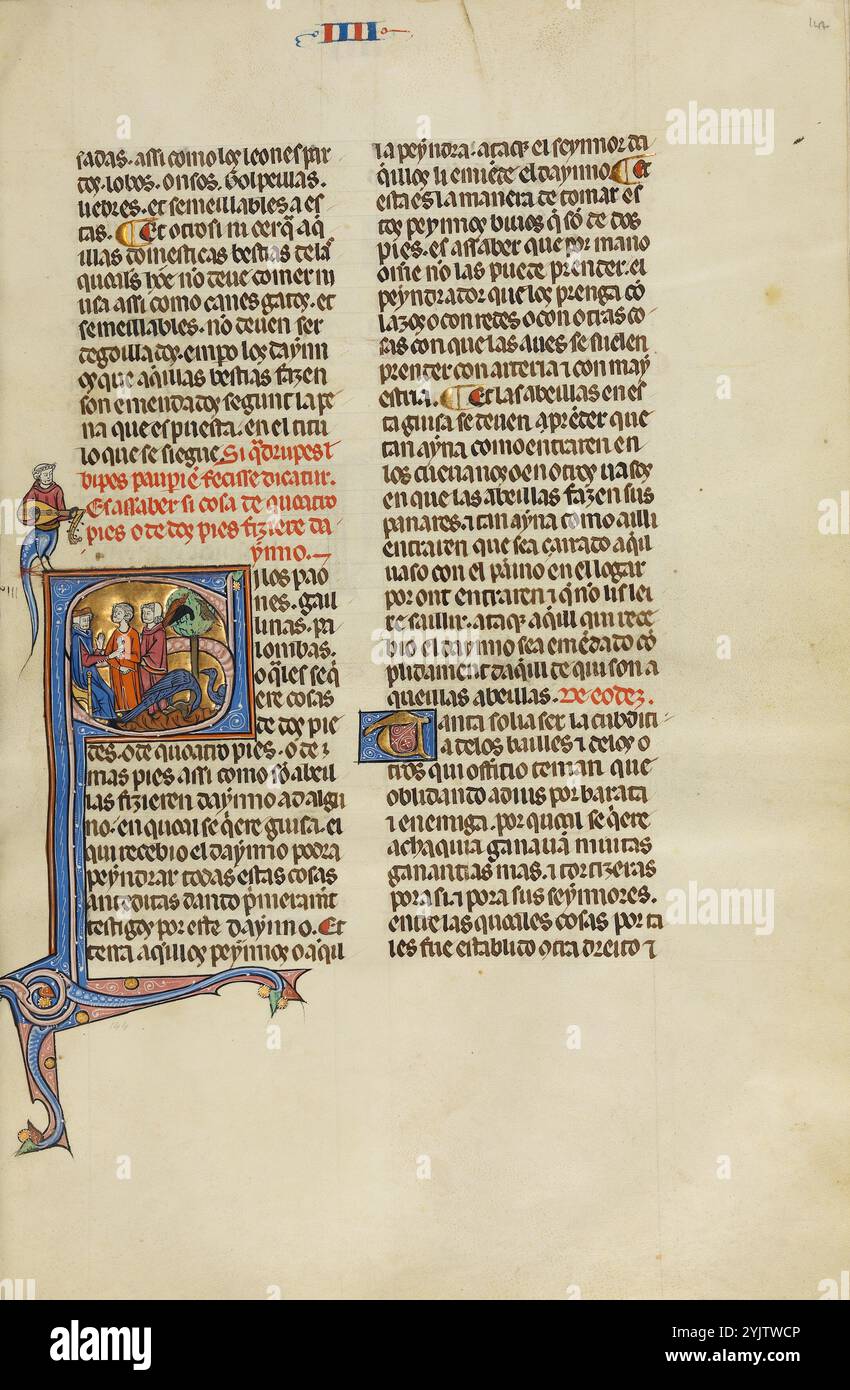 IIII
sadas. assi como los leones par
dos. lobos. onsos. Golpeillas.
liebres. et semeillables a es
tas. Et otrosi ni cerq̃ aq̃
illas domesticas bestias delas
quoals hõe no deue comer ni
usa assi como canes gatos. et
semeillables. no deuen ser
degoillados. empo los daynn
os que aq̃illas bestias fizen
son emendados segunt la pe
na que es puesta. en el titu
lo que se siegue. Si q̃drupes l
bipes paupiẽ fecisse dicatur.
Es assaber si cosa de quoatro
pies o de dos pies fiziere da
ynno.
Si los pao
nes. gall
linas. pa
lombas.
o q̃les seq̃
ere cosas
de dos pie
des. o de quoatro pies. o de
mas pies assi como sõ abeil
las fizieren daynno ad algu
no. en quoal se q̃ere guisa. el
qui recebio el daynno podra
peyndrar todas estas cosas
anteditas dando p̃merament
testigos por este daynno. Et
terra aq̃illos peynnos o aq̃il
la peyndra. ataq̃ el seynnor da
q̃illos li emiẽde el daynno. Et
esta es la manera de tomar es
tos peynnos biuos q̃ sõ de dos
pies. es assaber que por mano
õme no las puede prender. el
peyndrador que los prenga cõ
lazos o con redes o con otras co
sas con que las aues se suelen
prender con arteria ⁊ con may
estria. Et las abeillas en es
ta guisa se deuen aprẽder que
tan ayna como entraren en
los cueuanos o en otros uasos
en que las abeillas fazen sus
panares. ⁊ tan ayna como ailli
entraren que sea çarrado aq̃il
uaso con el panno en el logar
por ont entraren ⁊ q̃ no lis lei
re saillir. ataq̃ aq̃ill qui rece
bio el daynno sea emẽdado cõ
plidament daq̃ill de qui son a
queillas abeillas. De eodez.
Tanta solia ser la cubdici
a de los bailles ⁊ de los o
tros qui officio tenian que
oblidando a dius por barata
⁊ enemiga. por quoal se q̃ere
achaquia ganauã muitas
ganancias mas. ⁊ tortizeras
pora si. ⁊ pora sus seynnores.
entre las quoales cosas por ta
les fue establido otra dreito ⁊
alamy
Image ID: 2YJTWCP
www.alamy.com